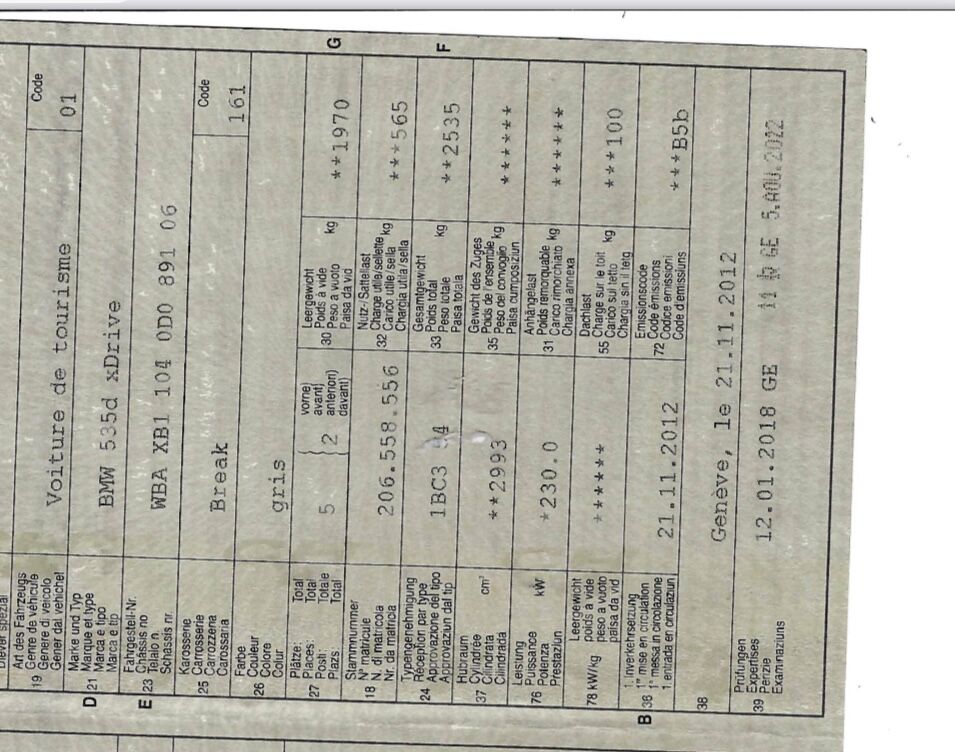 Art des Fahrzeugs
Genre de véhicule
Genere di veicolo
Gener dal vehichel
19 Voiture de tourisme Code 01
Marke und Typ
Marque et type
Marca e tipo
Marca e tip
D 21 BMW 535d xDrive
Fahrgestell-Nr.
Châssis no
Telaio n.
Schassis nr.
E 23 WBA XB1 104 0D0 891 06
Karosserie
Carrosserie
Carrozzeria
Carossaria
25 Break Code 161
Farbe
Couleur
Colore
Colur
26 gris
Plätze: Total
Places: Total
Posti: Totale
Plazs Total
27 5 } 2 vorne)
avant)
anteriori)
davant)
Leergewicht
Poids à vide
Peso a vuoto
Paisa da vid
30 kg **1970 G
Stammnummer
N° matricule
N. di matricola
Nr. da matricla
18 206.558.556
Nutz-/Sattellast
Charge utile/sellette
Carico utile/sella
Chargia utila/sella
32 kg ***565
Typengenehmigung
Réception par type
Approvazione del tipo
Approvaziun dal tip
24 1BC3 94
Gesamtgewicht
Poids total
Peso totale
Paisa totala
33 kg **2535 F
Hubraum
Cylindrée
Cilindrata
Cilindrada
37 cm³ **2993
Gewicht des Zuges
Poids de l'ensemble
Peso del convoglio
Paisa cumposiziun
35 kg ******
Leistung
Puissance
Potenza
Prestaziun
76 kW *230.0
Anhängelast
Poids remorquable
Carico rimorchiato
Chargia annexa
31 kg ******
Leergewicht
poids à vide
peso a vuoto
paisa da vid
78 kW/kg *****
Dachlast
Charge sur le toit
Carico sul tetto
Chargia sin il tetg
55 kg ***100
1. Inverkehrsetzung
1re mise en circulation
1a messa in circolazione
1. entrada en circulaziun
B 36 21.11.2012
Emissionscode
Code émissions
Codice emissioni
Code d'emissiuns
72 ***B5b
38 Genève, le 21.11.2012
Prüfungen
Expertises
Perizie
Examinaziuns
39 12.01.2018 GE GE 5.AOU.2022